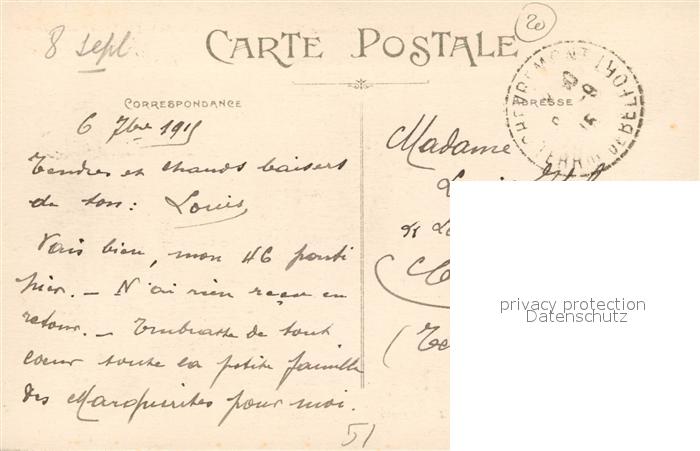 8 sept.
20
CARTE POSTALE
CORRESPONDANCE
ADRESSE
CHEVREMONT
TERRRE DE BELFORT
6 7bre 1915
Tendres et chauds baisers
de ton : Louis
Vais bien, mon 46 parti
hier. – N'ai rien reçu en
retour. – Embrasse de tout
cœur toute la petite famille
des Marguerites pour moi.
Madame
privacy protection
Datenschutz
51